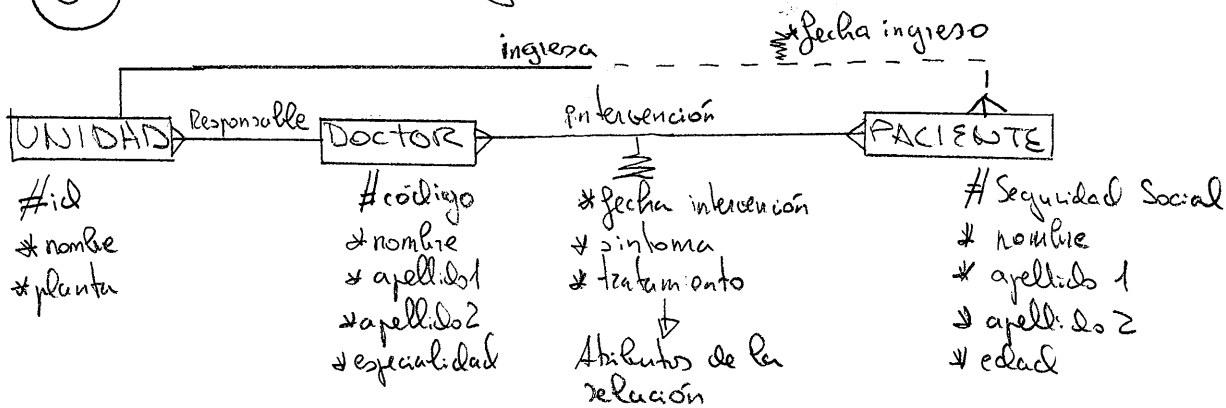 *fecha ingreso
ingresa
UNIDAD
Responsable
DOCTOR
intervención
PACIENTE
#id
*nombre
*planta
#código
*nombre
*apellido1
*apellido2
*especialidad
*fecha intervención
*sintoma
*tratamiento
Atributos de la
relación
# Seguridad Social
* nombre
* apellido 1
* apellido 2
* edad